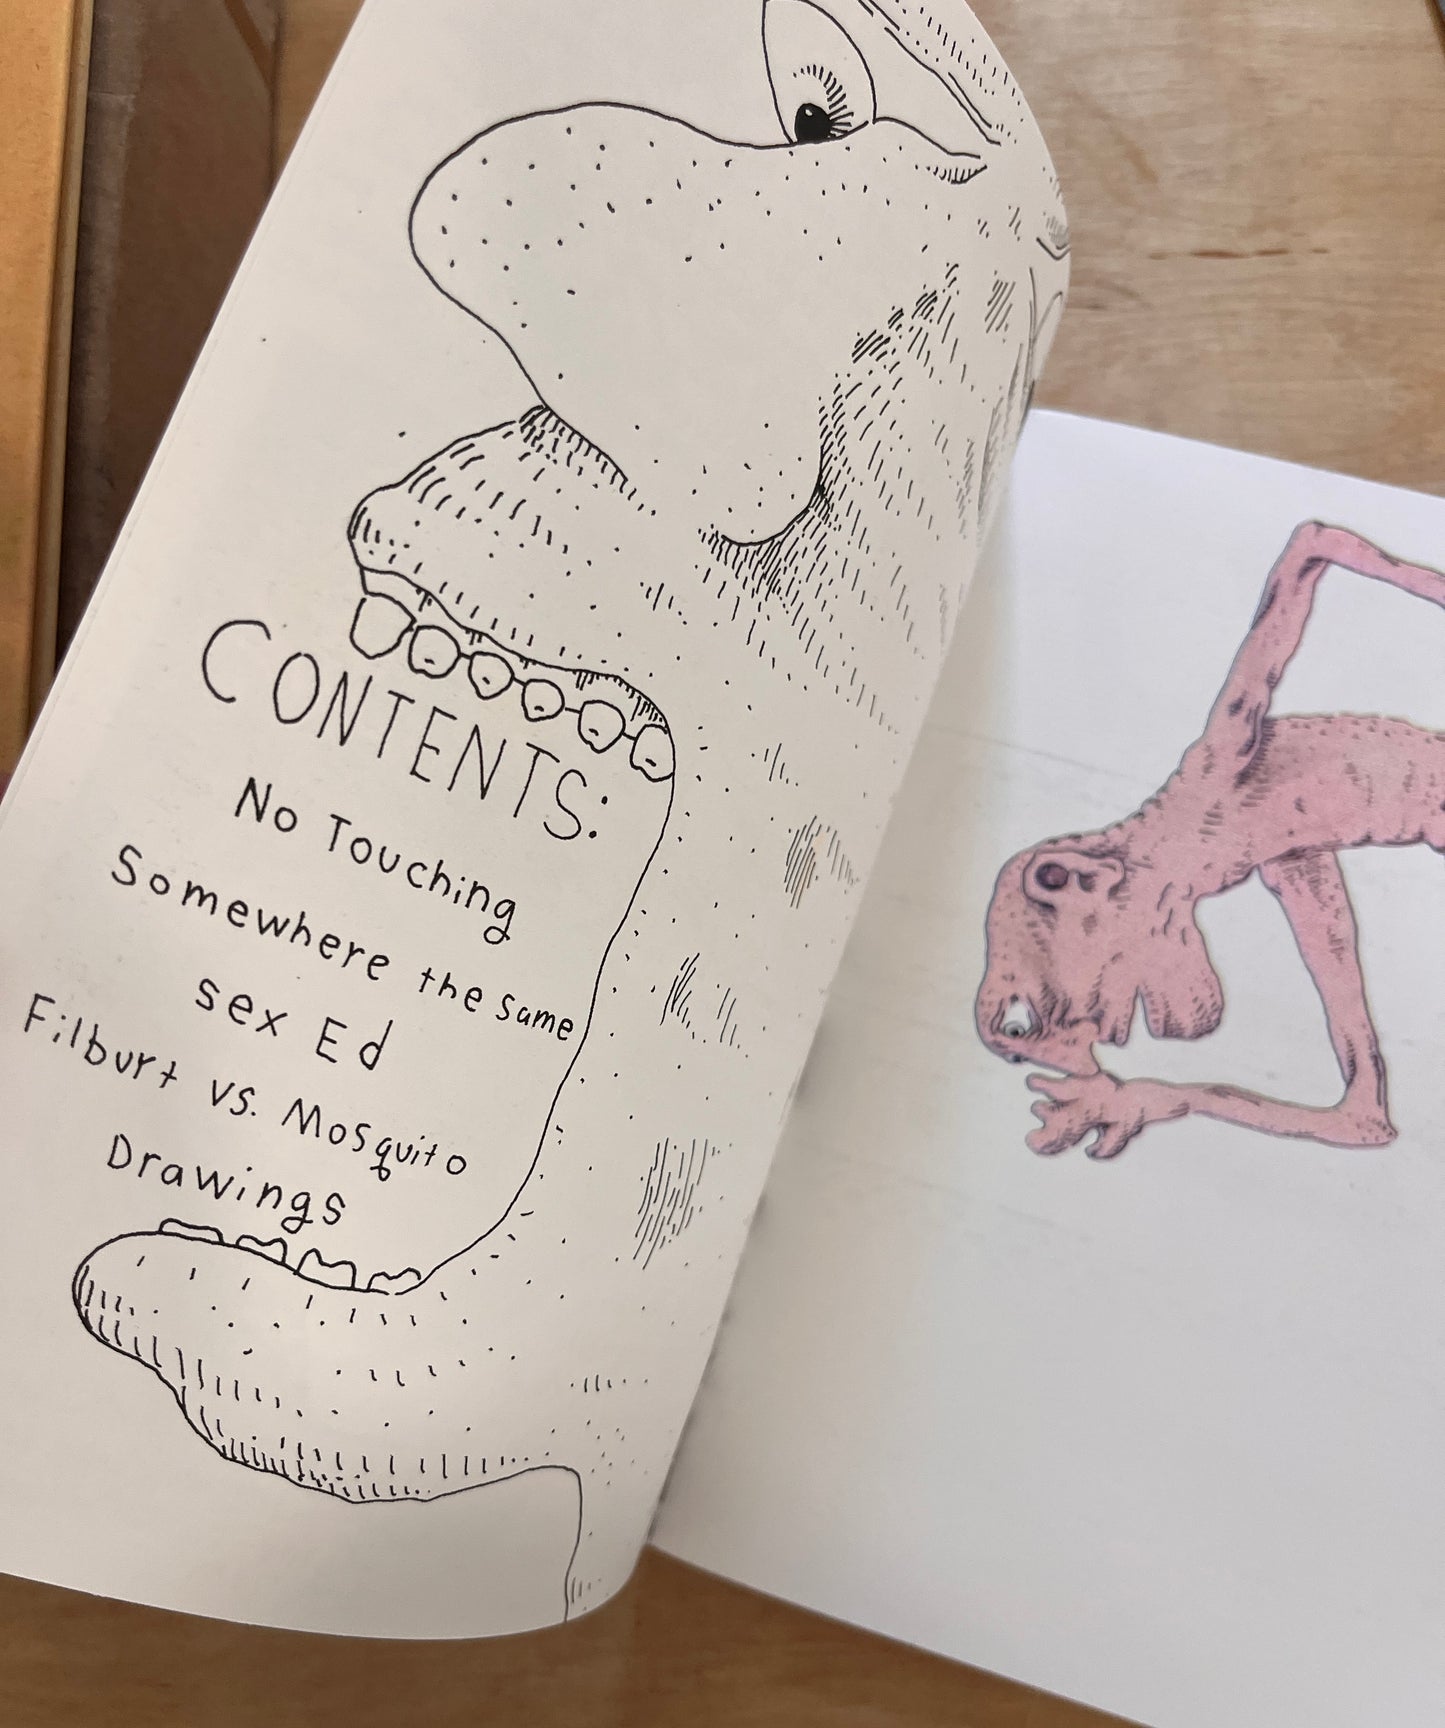 CONTENTS:
No Touching
Somewhere the same
sex Ed
Filburt vs. Mosquito
Drawings